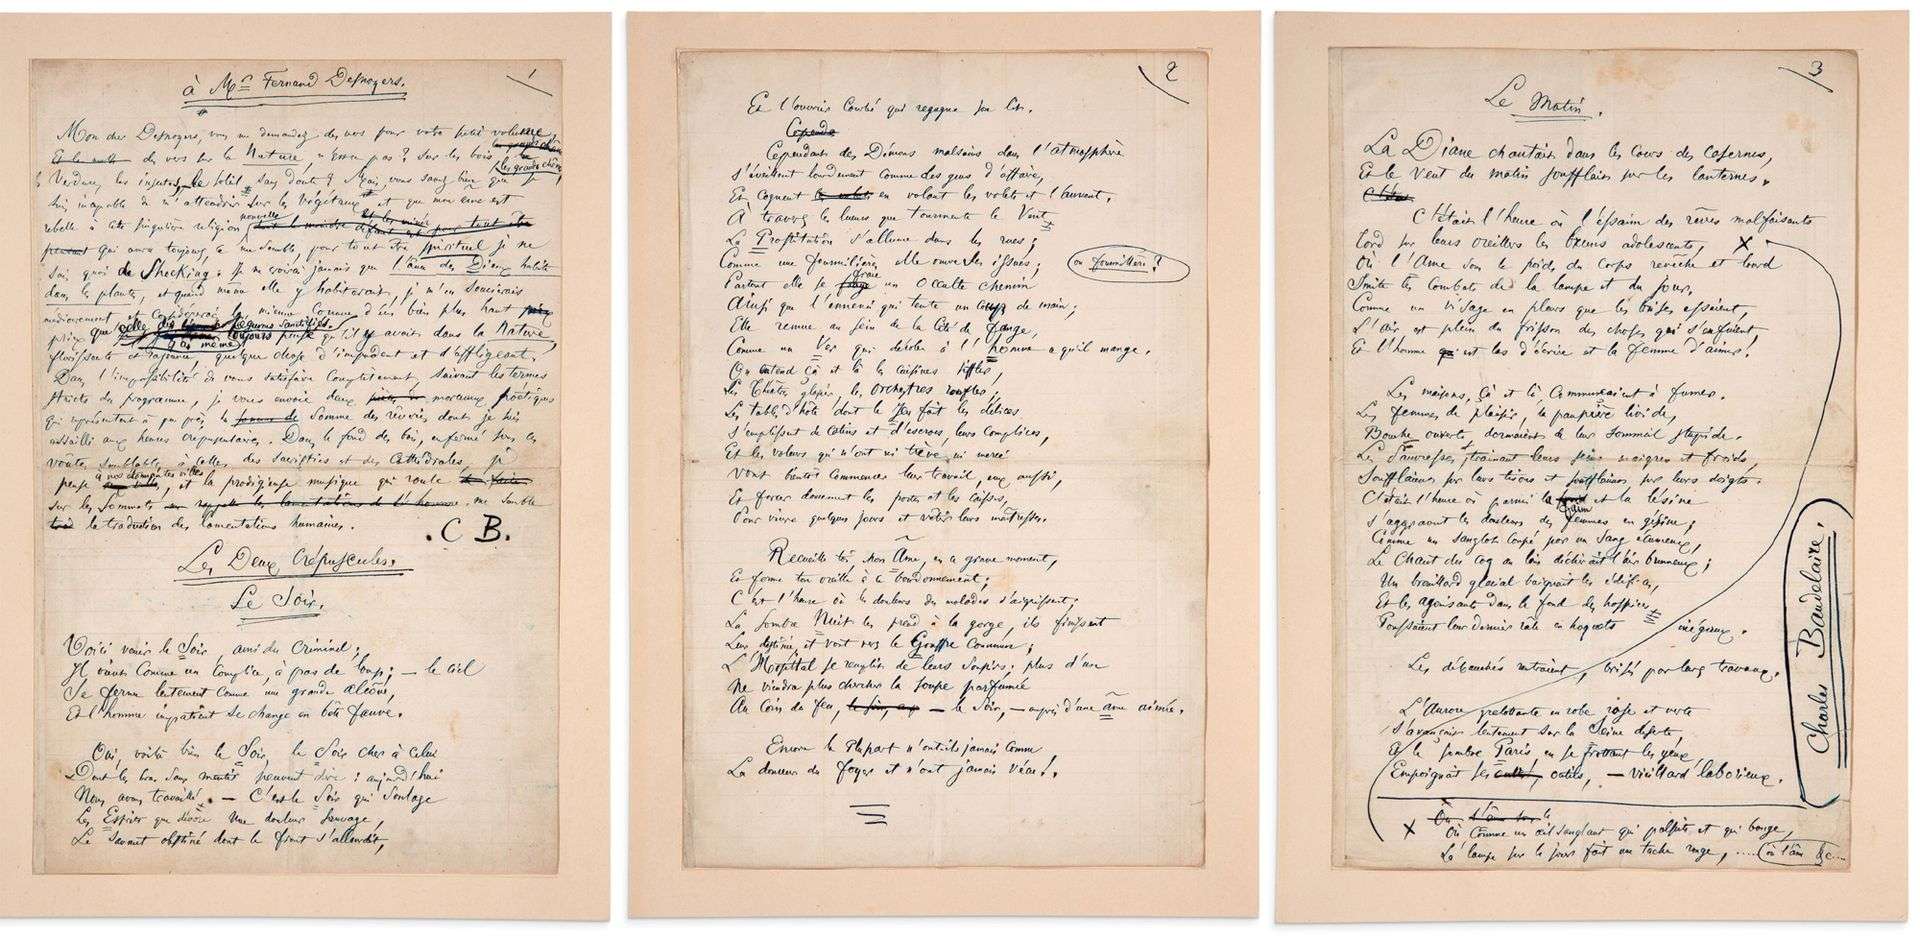 1
à Mr Fernand Desnoyers.
Mon cher Desnoyers, vous me demandez des vers pour votre petit volume,
des vers sur la Nature, n'est-ce pas? Sur les bois, les grands chênes,
la Verdure, les insectes, le soleil, sans doute? Mais, vous savez bien que je
suis incapable de m'attendrir sur les Végétaux et que mon âme est
rebelle à cette singulière religion nouvelle
qui aura toujours, ce me semble, pour tout être spirituel je ne
sais quoi de Shocking. Je ne croirai jamais que l'âme des Dieux habite
dans les plantes, et quand même elle y habiterait, je m'en soucierais
médiocrement, et considérerais la mienne comme d'un bien plus haut
prix que celle des légumes sanctifiés.
J'ai même toujours pensé qu'il y avait dans la Nature,
florissante et rajeunie, quelque chose d'impudent et d'affligeant.
Dans l'impossibilité de vous satisfaire complètement, suivant les termes
stricts du programme, je vous envoie deux morceaux poétiques
qui représentent à peu près la somme des rêveries dont je suis
assailli aux heures crépusculaires. Dans le fond des bois, enfermé sous ces
voûtes semblables à celles des sacristies et des Cathédrales, je
pense à nos étonnantes villes, et la prodigieuse musique qui roule
sur les Sommets me semble
la traduction des lamentations humaines.
C B.
Les Deux Crépuscules.
Le Soir.
Voici venir le Soir, ami du Criminel;
Il vient comme un complice, à pas de loup; — le ciel
Se ferme lentement comme une grande alcôve,
Et l'homme impatient se change en bête fauve.
Oui, voilà bien le Soir, le Soir cher à celui
Dont les bras sans mentir peuvent dire: aujourd'hui
Nous avons travaillé. — C'est le Soir qui soulage
Les Esprits que dévore une douleur sauvage,
Le Savant obstiné dont le front s'alourdit,
2
Et l'ouvrier Courbé qui regagne son lit.
Cependa
Cependant des Démons malsains dans l'atmosphère
S'éveillent lourdement comme des gens d'affaire,
Et cognent en volant les volets et l'auvent.
À travers les lueurs que tourmente le Vent,
La Prostitution s'allume dans les rues;
Comme une fourmilière elle ouvre ses issues;
(ou fourmillère?)
Partout elle se fraie un occulte chemin
Ainsi que l'ennemi qui tente un coup de main;
Elle remue au sein de la Cité de fange,
Comme un Ver qui dérobe à l'homme ce qu'il mange.
On entend çà et là les cuisines siffler,
Les Théâtres glapir, les orchestres ronfler;
Les tables d'hôte dont le Jeu fait les délices
S'emplissent de catins et d'escrocs, leurs complices,
Et les voleurs qui n'ont ni trêve ni merci
Vont bientôt commencer leur travail, eux aussi,
Et forcer doucement les portes et les caisses,
Pour vivre quelques jours et vêtir leurs maîtresses.
Recueille-toi, mon Âme, en ce grave moment,
Et ferme ton oreille à ce bourdonnement;
C'est l'heure où les douleurs des malades s'aigrissent;
La Sombre Nuit les prend à la gorge, ils finissent
Leur destinée et vont vers le Gouffre commun;
L'Hôpital se remplit de leurs soupirs; plus d'un
Ne viendra plus chercher la soupe parfumée
Au coin du feu, — le Soir, — auprès d'une âme aimée.
Encore la Plupart n'ont-ils jamais connu
La douceur du foyer et n'ont jamais vécu!
3
Le Matin.
La Diane chantait dans les cours des casernes,
Et le Vent du matin soufflait sur les lanternes.
C'était
C'était l'heure où l'essaim des rêves malfaisants
Tord sur leurs oreillers les bruns adolescents, X
Où l'Âme sous le poids du corps revêche et lourd
Imite les combats de la lampe et du jour.
Comme un visage en pleurs que les brises essuient,
L'air est plein du frisson des choses qui s'enfuient
Et l'homme est las d'écrire et la femme d'aimer!
Les maisons, çà et là commençaient à fumer.
Les femmes de plaisir, la paupière livide,
Bouche ouverte, dormaient de leur sommeil stupide.
Les Pauvresses, traînant leurs seins maigres et froids,
Soufflaient sur leurs tisons et soufflaient sur leurs doigts.
C'était l'heure où parmi la faim et la lésine
S'aggravent les douleurs des femmes en gésine;
Comme un sanglot coupé par un sang écumeux,
Le Chant du coq au loin déchirait l'air brumeux;
Un brouillard glacial baignait les édifices,
Et les agonisants dans le fond des hospices
Poussaient leur dernier râle en hoquets inégaux.
Les débauchés rentraient, brisés par leurs travaux.
L'Aurore grelottante en robe rose et verte
S'avançait lentement sur la Seine déserte,
Et le sombre Paris en se frottant les yeux
Empoignait ses outils, — vieillard laborieux.
Charles Baudelaire.
X Où comme un œil sanglant qui palpite et qui bouge,
La lampe sur le jour fait une tache rouge, ..... (où l'âm &c...